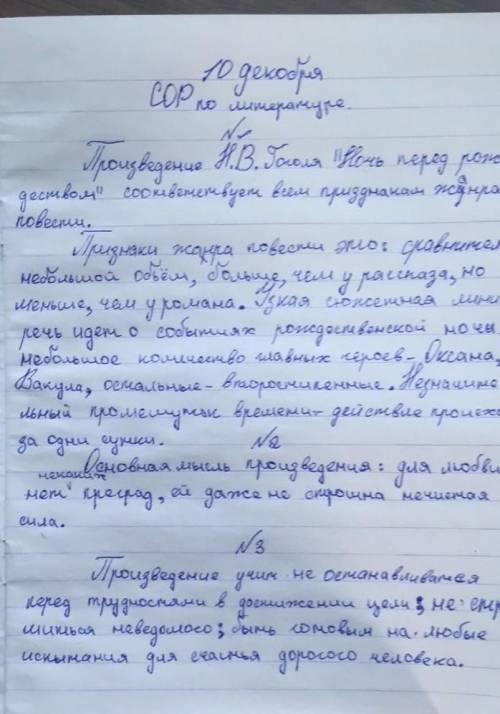 10 декабря
СОР по литературе.
№1
Произведение Н.В. Гоголя "Ночь перед рож
деством" соответствует всем призднакам жанра
повести.
Признаки жанра повести это: сравнител
небольшой объём, больше, чем у рассказа, но
меньше, чем у романа. Узкая сюжетная лини
речь идет о событиях рождественской ночи
небольшое количество главных героев - Оксана,
Вакула, остальные - второстипенные. Незначите
льный промежутьк времени - действие происхо
за одни сутки.
№2
Основная мысль произведения: для любви
некаких
нет преград, ей даже не страшна нечистая
сила.
№3
Произведение учит не останавливатся
перед трудностями в достижении цели; не стр
миться неведомого; быть готовым на любые
испытания для счастья дорогого человека.